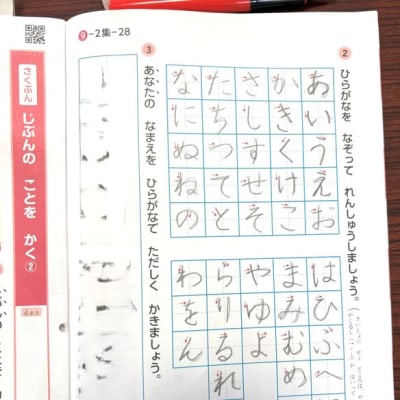 ❾-2集-28
② ひらがなを なぞって れんしゅうしましょう。
あいうえお
かきくけこ
さしすせそ
たちつてと
なにぬねの
はひふへ
まみむめ
やゆよ
らりるれ
わをん
③ あなたの なまえを ひらがなで ただしく かきましょう。
さくぶん
じぶんの ことを かく②